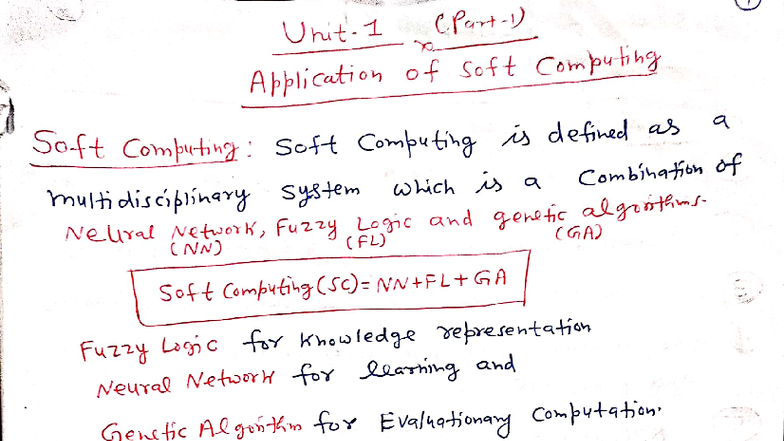 Unit-1 (Part-1)
Application of Soft Computing
Soft Computing: Soft Computing is defined as a
multidisciplinary system which is a Combination of
Neural Network, Fuzzy Logic and genetic algorithms.
(NN) (FL) (GA)
Soft Computing (SC) = NN+FL+GA
Fuzzy Logic for Knowledge representation
Neural Network for learning and
Genetic Algorithm for Evaluationary Computation.